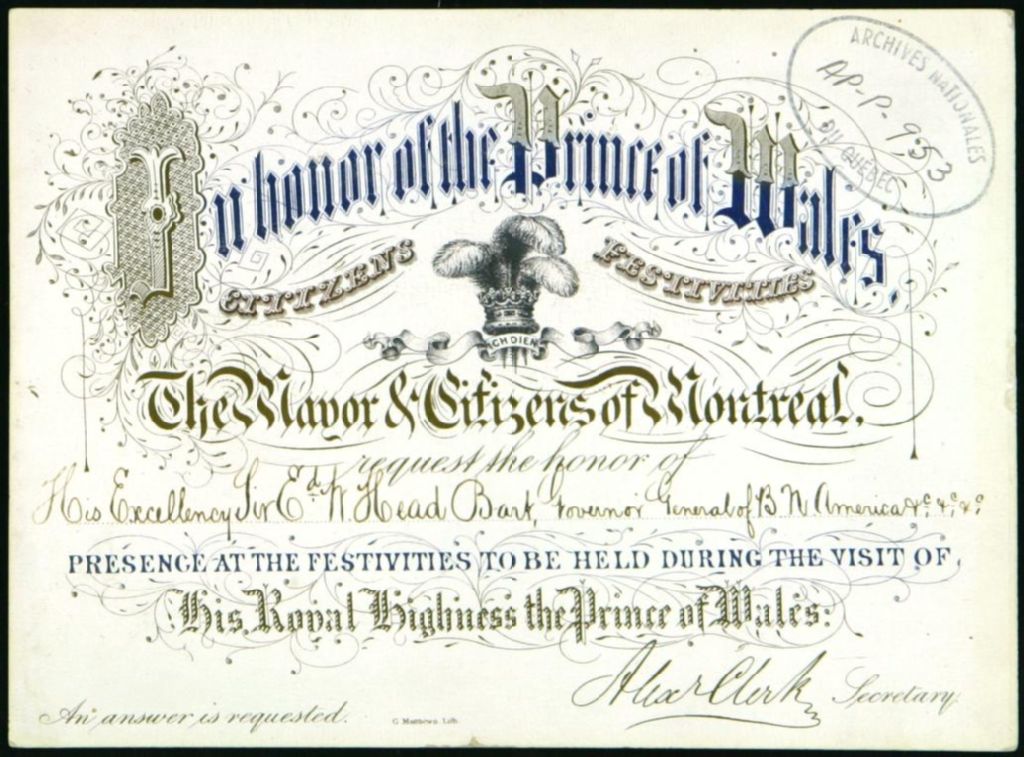 ARCHIVES NATIONALES
AP-P-953
DU QUÉBEC
In honor of the Prince of Wales.
CITIZENS FESTIVITIES
ICH DIEN
The Mayor & Citizens of Montreal.
request the honor of
His Excellency Sir Ed. W. Head Bart, Governor General of B. N. America &c. &c. &c.
PRESENCE AT THE FESTIVITIES TO BE HELD DURING THE VISIT OF,
His Royal Highness the Prince of Wales:
Alexr Clerk Secretary
An answer is requested.
G Matthews Lith.